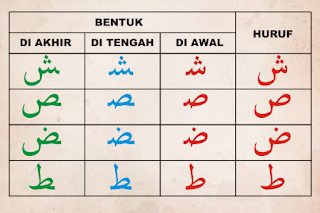 BENTUK HURUF
DI AKHIR DI TENGAH DI AWAL
ـش ـشـ شـ ش
ـص ـصـ صـ ص
ـض ـضـ ضـ ض
ـط ـطـ طـ ط